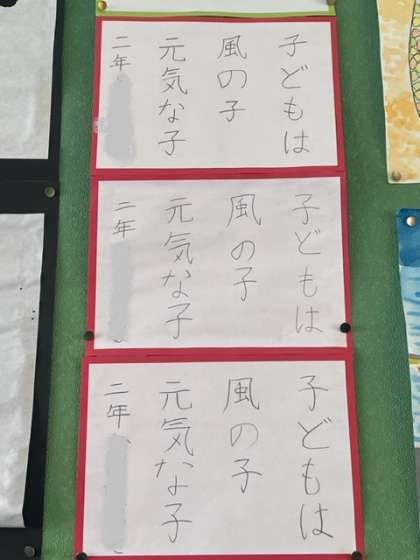 子どもは
風の子
元気な子
二年
子どもは
風の子
元気な子
二年
子どもは
風の子
元気な子
二年